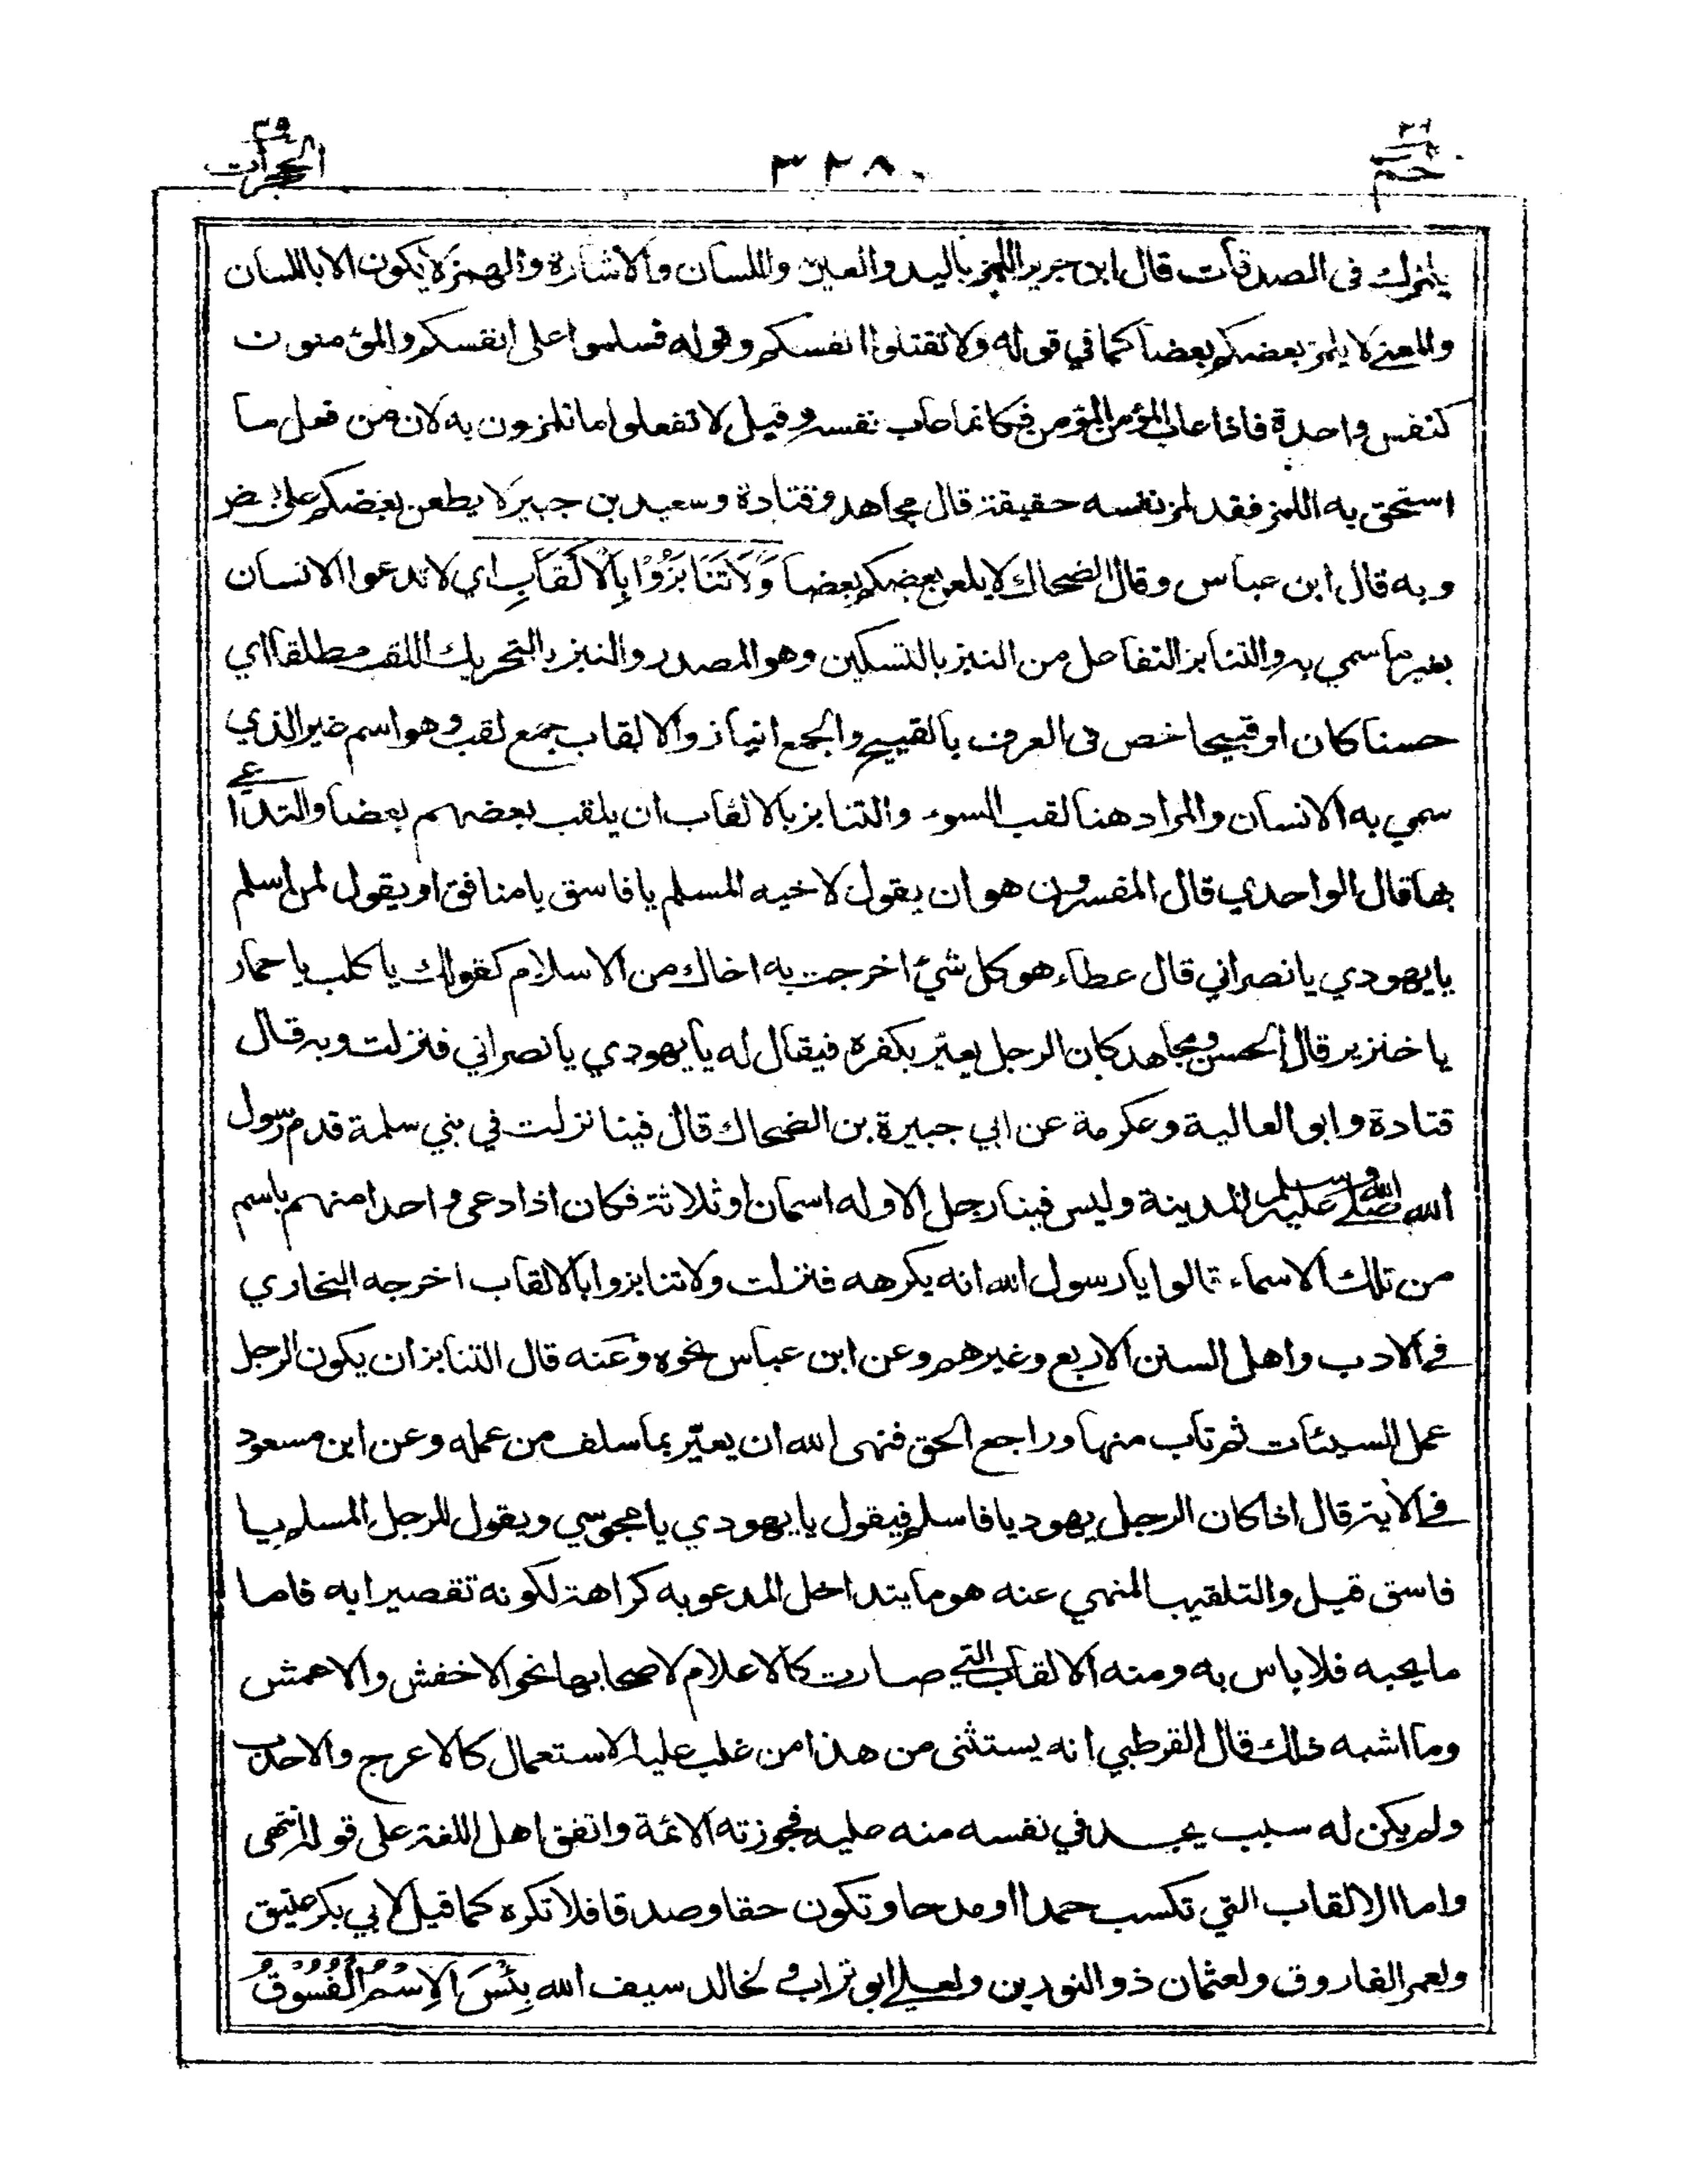 حم ٢٦
٣٢٨
الحجرات ٤٩
يلمزك فى الصدقات قال ابن جرير اللمز باليد والعين واللسان والاشارة والهمز لا يكون الا باللسان
والمعنى لا يلمز بعضكم بعضا كما في قوله ولا تقتلوا انفسكم وقوله فسلموا على انفسكم والمؤمنون
كنفس واحدة فاذا عاب المؤمن المؤمن فكانما عاب نفسه وقيل لا تفعلوا ما تلمزون به لان من فعل ما
استحق به اللمز فقد لمز نفسه حقيقة قال مجاهد وقتادة وسعيد بن جبير لا يطعن بعضكم على بعض
وبه قال ابن عباس وقال الضحاك لا يلعن بعضكم بعضا وَلَا تَنَابَزُوْا بِالْاَلْقَابِ اي لا تدعوا الانسان
بغير ما سمي به والتنابز التفاعل من النبز بالتسكين وهو المصدر والنبز بالتحريك اللقب مطلقا اي
حسنا كان او قبيحا خص فى العرف بالقبيح والجمع انباز والالقاب جمع لقب وهو اسم غير الذي
سمي به الانسان والمراد هنا لقب السوء والتنابز بالالقاب ان يلقب بعضهم بعضا والتداعي
بها قال الواحدي قال المفسرون هو ان يقول لاخيه المسلم يا فاسق يا منافق او يقول لمن اسلم
يا يهودي يا نصراني قال عطاء هو كل شئ اخرجت به اخاك من الاسلام كقولك يا كلب يا حمار
يا خنزير قال الحسن ومجاهد كان الرجل يعيّر بكفره فيقال له يا يهودي يا نصراني فنزلت وبه قال
قتادة وابو العالية وعكرمة عن ابي جبيرة بن الضحاك قال فينا نزلت في بني سلمة قدم رسول
الله صلى الله عليه وسلم المدينة وليس فينا رجل الا وله اسمان او ثلاثة فكان اذا دعى واحدا منهم باسم
من تلك الاسماء قالوا يا رسول الله انه يكرهه فنزلت ولا تنابزوا بالالقاب اخرجه البخاري
فى الادب واهل السنن الاربع وغيرهم وعن ابن عباس نحوه وعنه قال التنابز ان يكون الرجل
عمل السيئات ثم تاب منها وراجع الحق فنهى الله ان يعيّر بما سلف من عمله وعن ابن مسعود
فى الاية قال اذا كان الرجل يهوديا فاسلم فيقول يا يهودي يا مجوسي ويقول للرجل المسلم يا
فاسق قيل والتلقيب المنهي عنه هو ما يتداخل المدعو به كراهة لكونه تقصيرا به فاما
ما يحبه فلا باس به ومنه الالقاب التي صارت كالاعلام لاصحابها نحو الاخفش والاعمش
وما اشبه ذلك قال القرطبي انه يستثنى من هذا من غلب عليه الاستعمال كالاعرج والاحدب
ولم يكن له سبب يجد في نفسه منه عليه فجوزته الائمة واتفق اهل اللغة على قوله انتهى
واما الالقاب التي تكسب حمدا او مدحا وتكون حقا وصدقا فلا تكره كما قيل لابي بكر عتيق
ولعمر الفاروق ولعثمان ذو النورين ولعلي ابو تراب ولخالد سيف الله بِئْسَ الِاسْمُ الْفُسُوْقُ